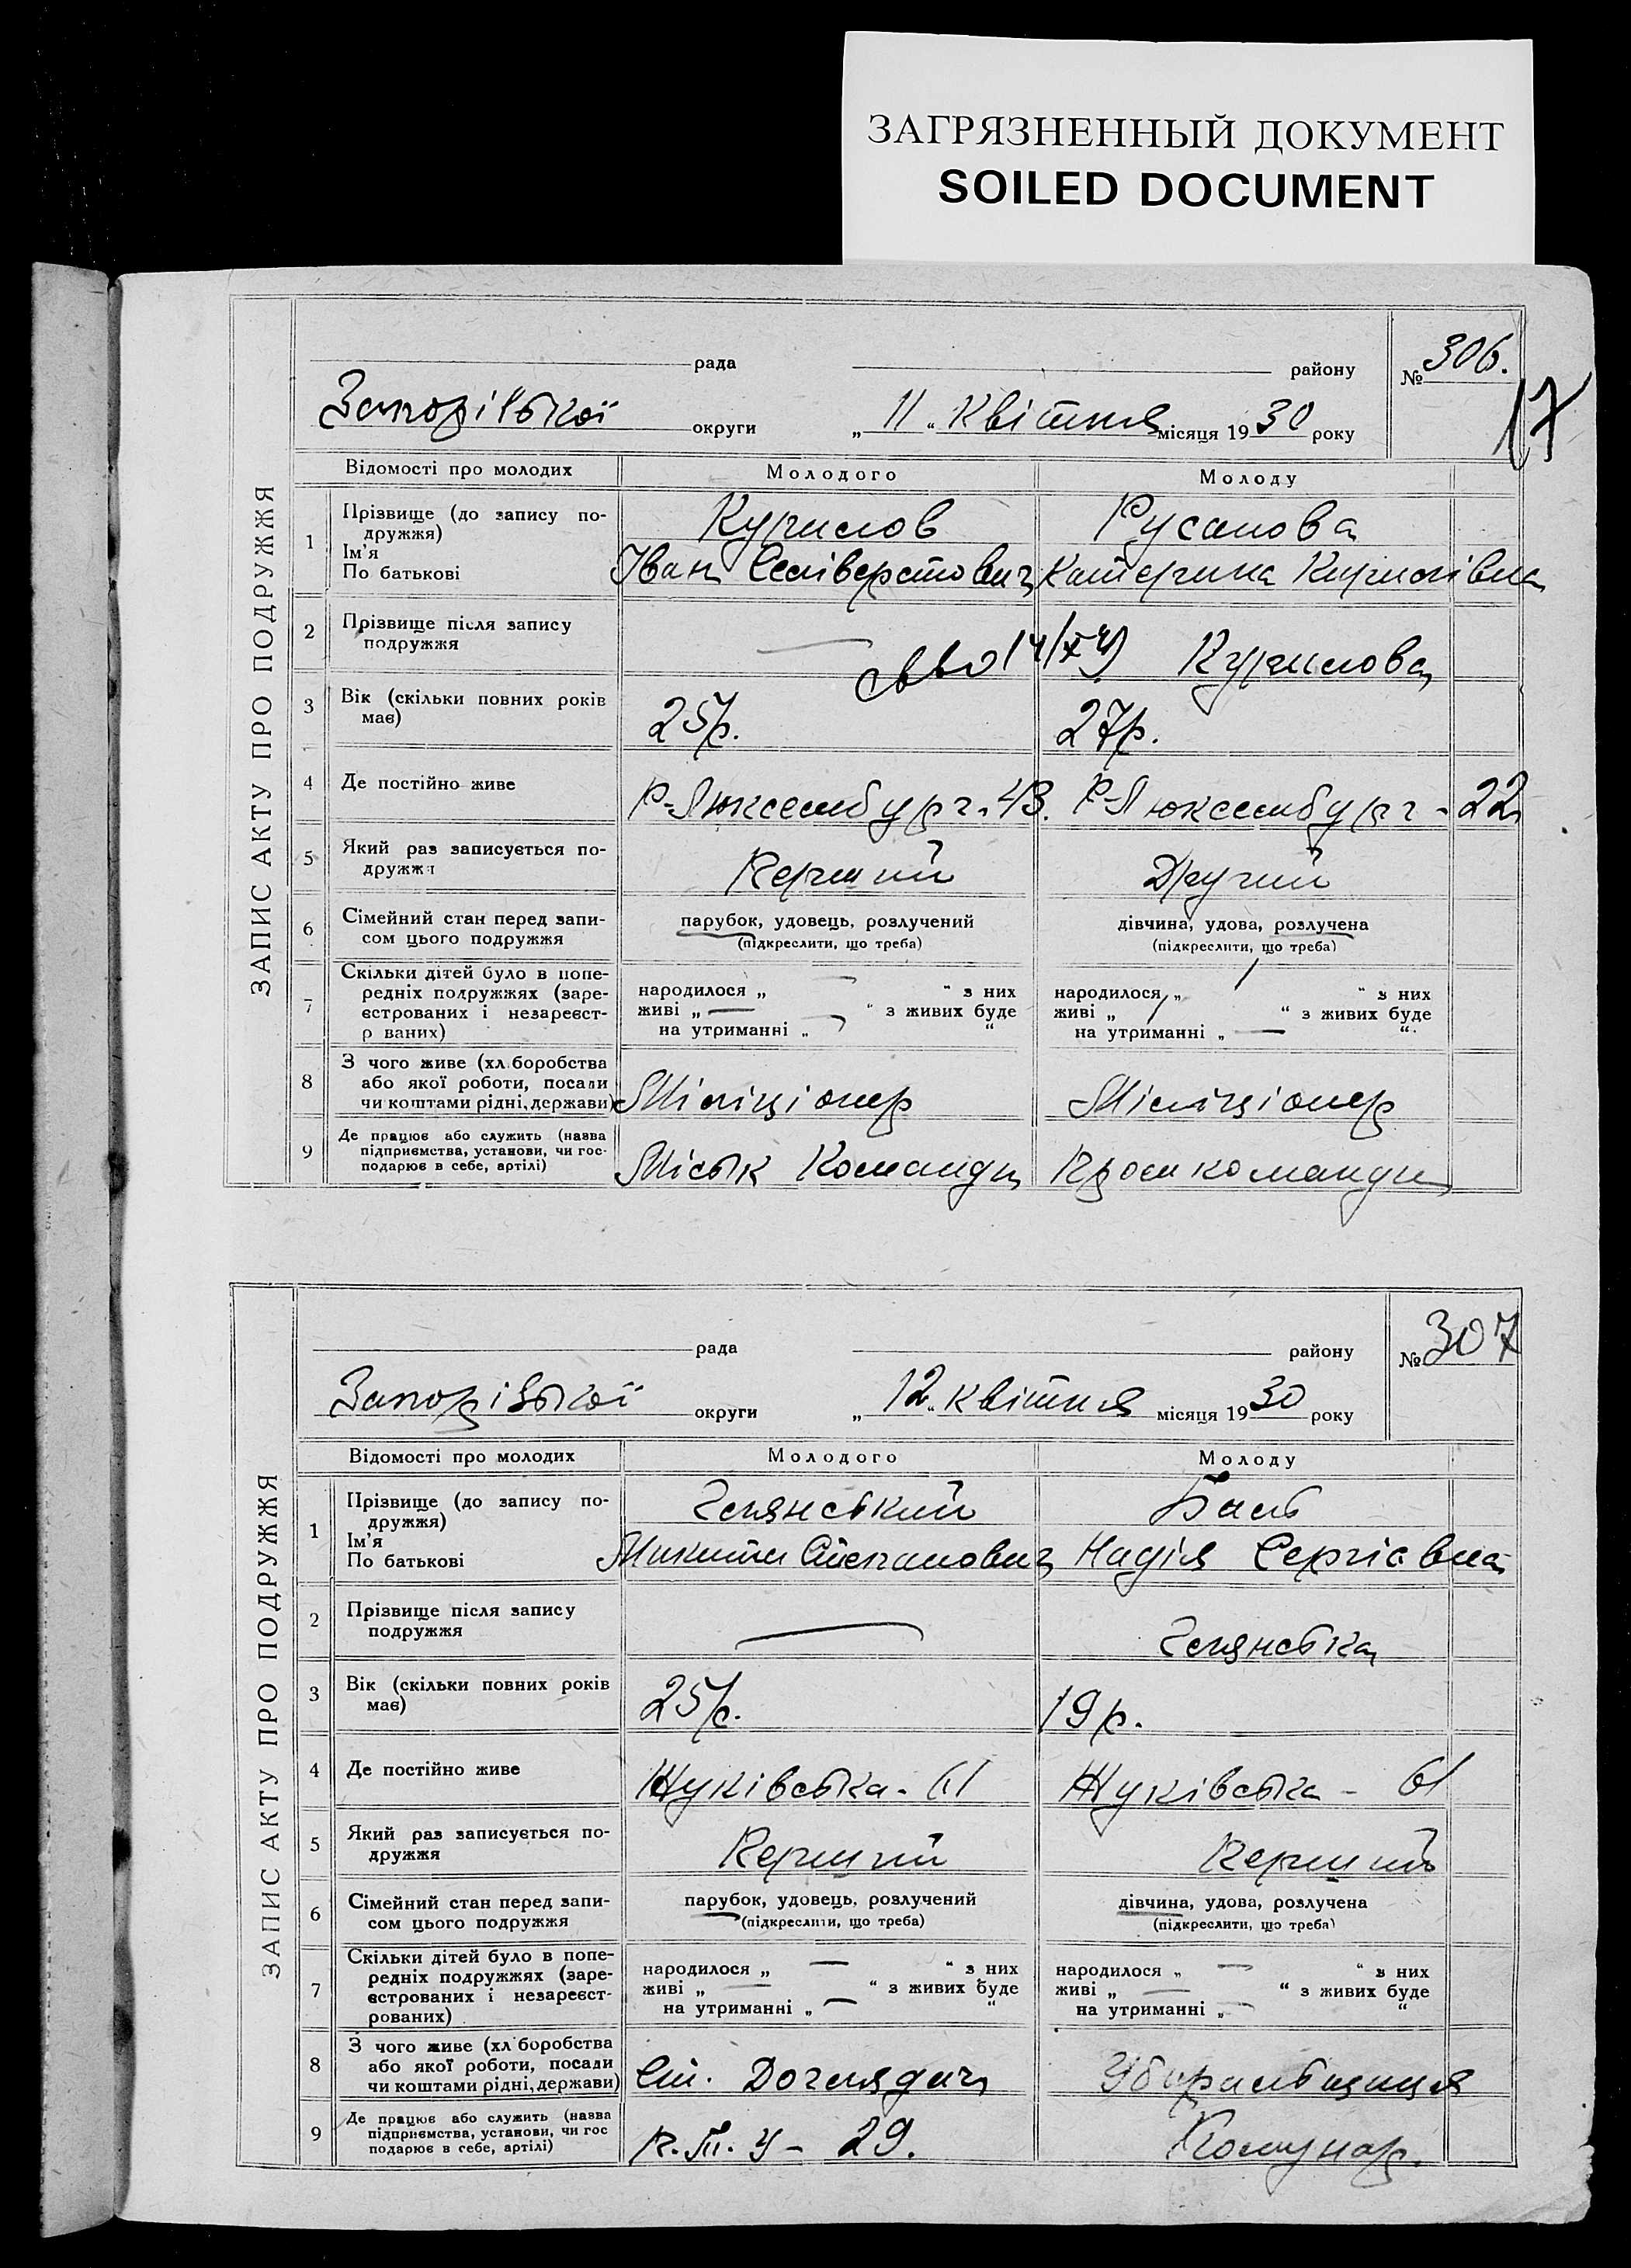 ЗАГРЯЗНЕННЫЙ ДОКУМЕНТ
SOILED DOCUMENT
ЗАПИС АКТУ ПРО ПОДРУЖЖЯ
рада району № 306.
17
Запорізької округи „ 11 “ Квітня місяця 1930 року
Відомості про молодих Молодого Молоду
1 Прізвище (до запису по-
дружжя)
Ім'я
По батькові
Курилов Русанова
Іван Селіверстович Катерина Кирилівна
2 Прізвище після запису
подружжя
— Курилова
3 Вік (скільки повних років
має)
25 р. 27 р.
4 Де постійно живе Р-Люксембург. 43. Р-Люксембург - 22
5 Який раз записується по-
дружжя
Перший Другий
6 Сімейний стан перед запи-
сом цього подружжя
парубок, удовець, розлучений дівчина, удова, розлучена
(підкреслити, що треба) (підкреслити, що треба)
7 Скільки дітей було в попе-
редніх подружжях (заре-
єстрованих і незареєст-
р ваних)
народилося „ — “ з них народилося „ / “ з них
живі „ — “ з живих буде живі „ / “ з живих буде
на утриманні „ — “ на утриманні „ — “
8 З чого живе (хліборобства
або якої роботи, посади
чи коштами рідні, держави)
Міліціонер Міліціонер
9 Де працює або служить (назва
підприємства, установи, чи гос-
подарює в себе, артілі)
Міськ Команди Пром команди
ЗАПИС АКТУ ПРО ПОДРУЖЖЯ
рада району № 307
Запорізької округи „ 12 “ квітня місяця 1930 року
Відомості про молодих Молодого Молоду
1 Прізвище (до запису по-
дружжя)
Ім'я
По батькові
Баль
Микита Степанович Надія Сергієвна
2 Прізвище після запису
подружжя
—
3 Вік (скільки повних років
має)
25 р. 19 р.
4 Де постійно живе Жуківська - 61 Жуківська - 61
5 Який раз записується по-
дружжя
Перший Перший
6 Сімейний стан перед запи-
сом цього подружжя
парубок, удовець, розлучений дівчина, удова, розлучена
(підкреслити, що треба) (підкреслити, що треба)
7 Скільки дітей було в попе-
редніх подружжях (заре-
єстрованих і незареєст-
рованих)
народилося „ — “ з них народилося „ — “ з них
живі „ — “ з живих буде живі „ — “ з живих буде
на утриманні „ — “ на утриманні „ — “
8 З чого живе (хліборобства
або якої роботи, посади
чи коштами рідні, держави)
Ст. Доглядач Убиральщиця
9 Де працює або служить (назва
підприємства, установи, чи гос
подарює в себе, артілі)
П.Т.У - 29. Комунар.